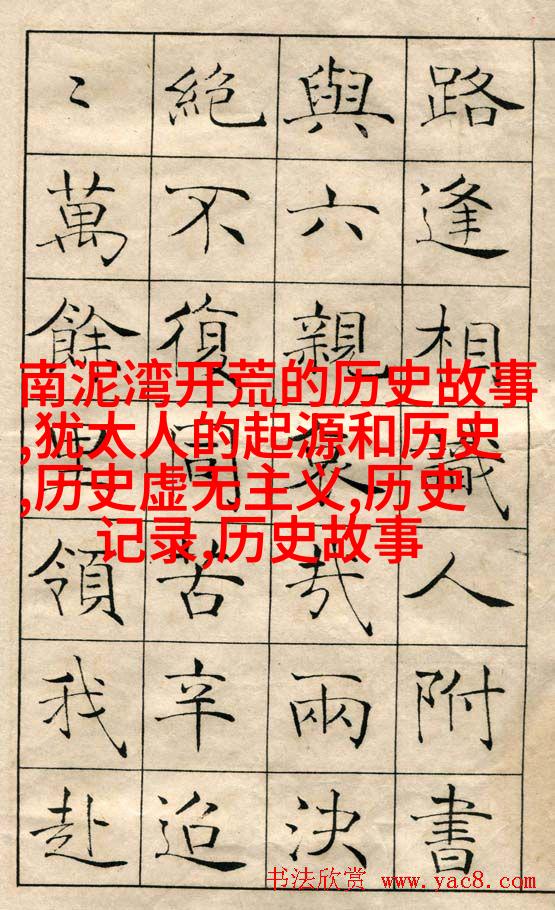 路逢相識人附書
與六親哀哉兩決
絶不復同苦辛迢
〻萬餘里領我赴
南泥湾开荒的历史故事
,犹太人的起源和历史
,历史虚无主义,历史
记录,历史故事
书法欣赏 www.yac8.com